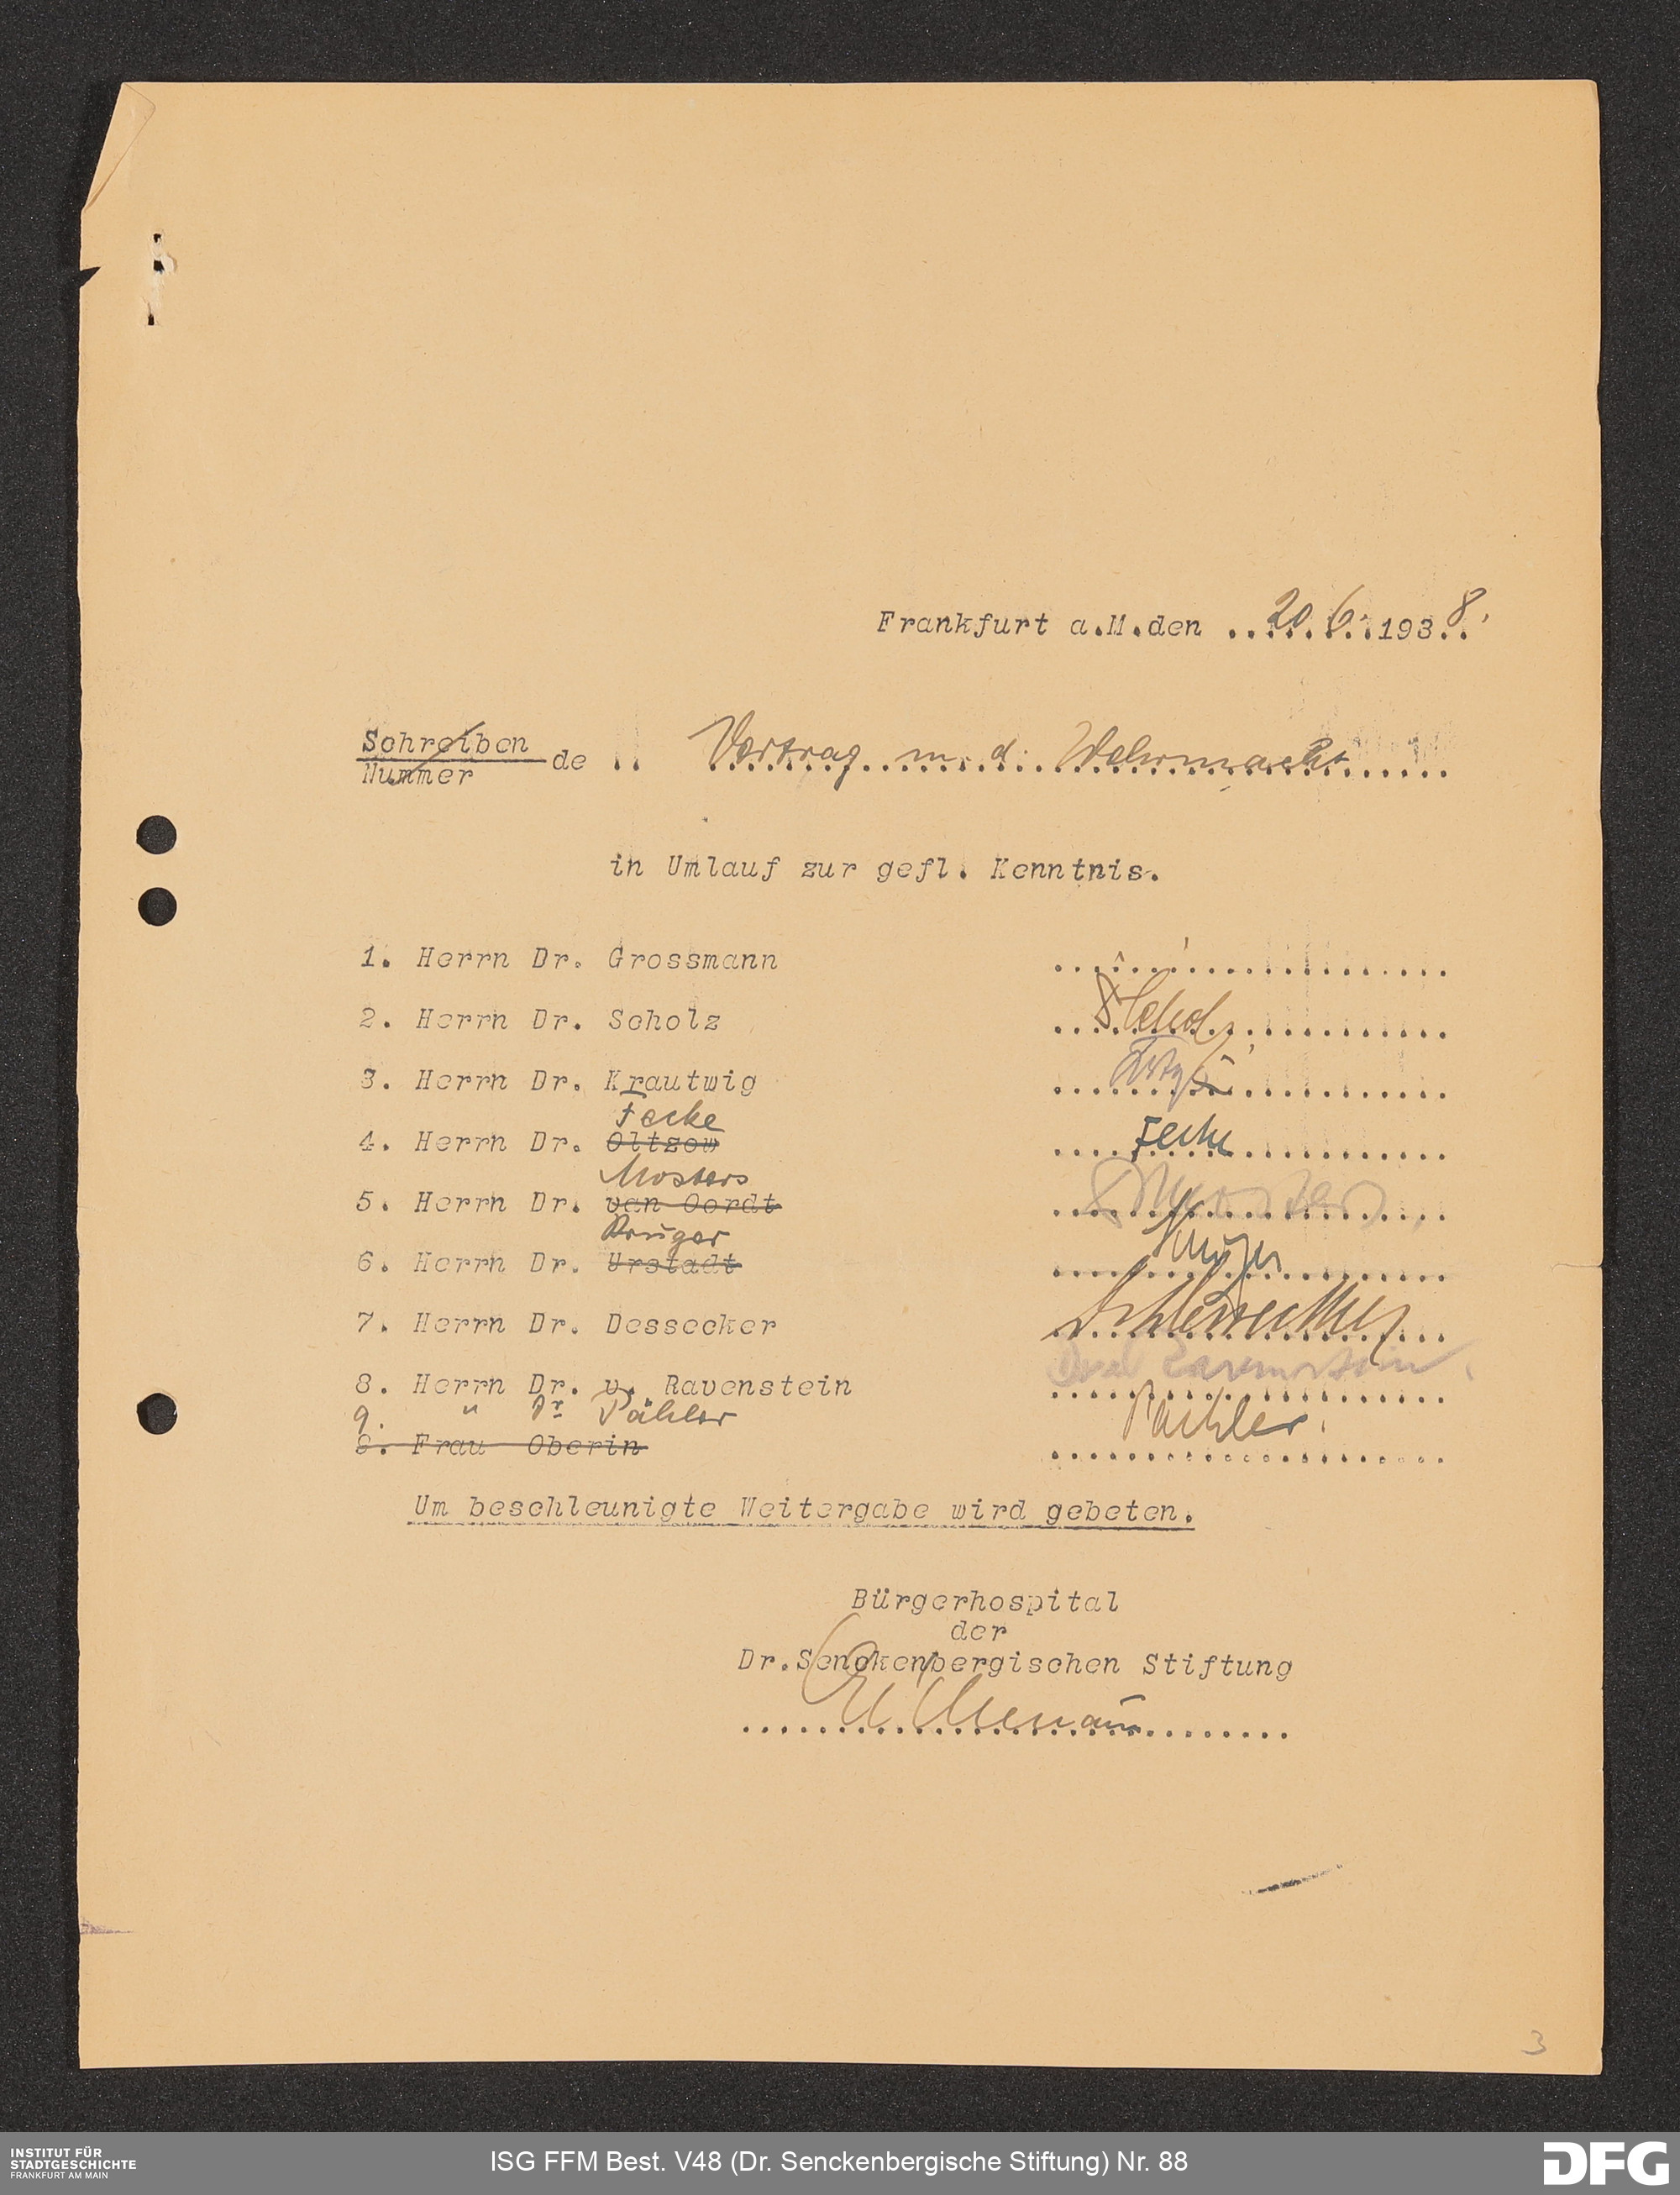 Frankfurt a.M.den ..20.6...1938.
Schreiben
Nummer de .. Vertrag m. d. Wehrmacht
in Umlauf zur gefl. Kenntnis.
1. Herrn Dr. Grossmann ....................
2. Herrn Dr. Scholz Scholz
3. Herrn Dr. Krautwig
Fecke
4. Herrn Dr. Oltzow Fecke
Mosters
5. Herrn Dr. van Oordt
Krüger
6. Herrn Dr. Urstadt Krüger
7. Herrn Dr. Dessecker
8. Herrn Dr. v. Ravenstein Ravenstein
9. " Dr Pähler Pähler.
9. Frau Oberin ....................
Um beschleunigte Weitergabe wird gebeten.
Bürgerhospital
der
Dr.Senckenbergischen Stiftung
3
INSTITUT FÜR
STADTGESCHICHTE
FRANKFURT AM MAIN
ISG FFM Best. V48 (Dr. Senckenbergische Stiftung) Nr. 88
DFG